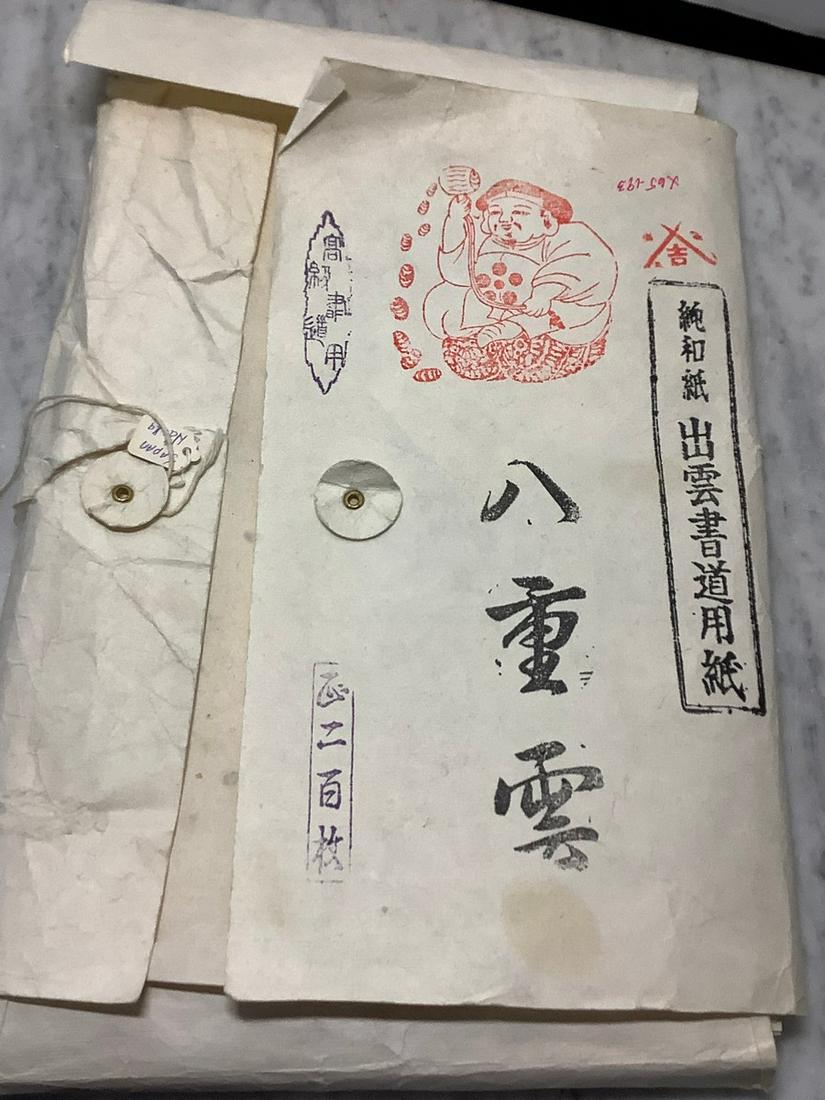 吉
純和紙 出雲書道用紙
八重雲
高級書道用
正二百枚
JAPAN